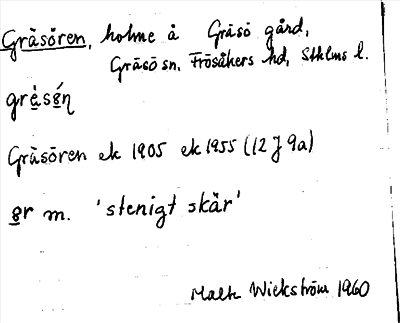 Gräsören, holme å Gräsö gård,
Gräsö sn, Frösåkers hd, Sthlms l.
Gräsören ek 1905 ek 1955 (12 J 9a)
ör m. 'stenigt skär'
Wickström 1960